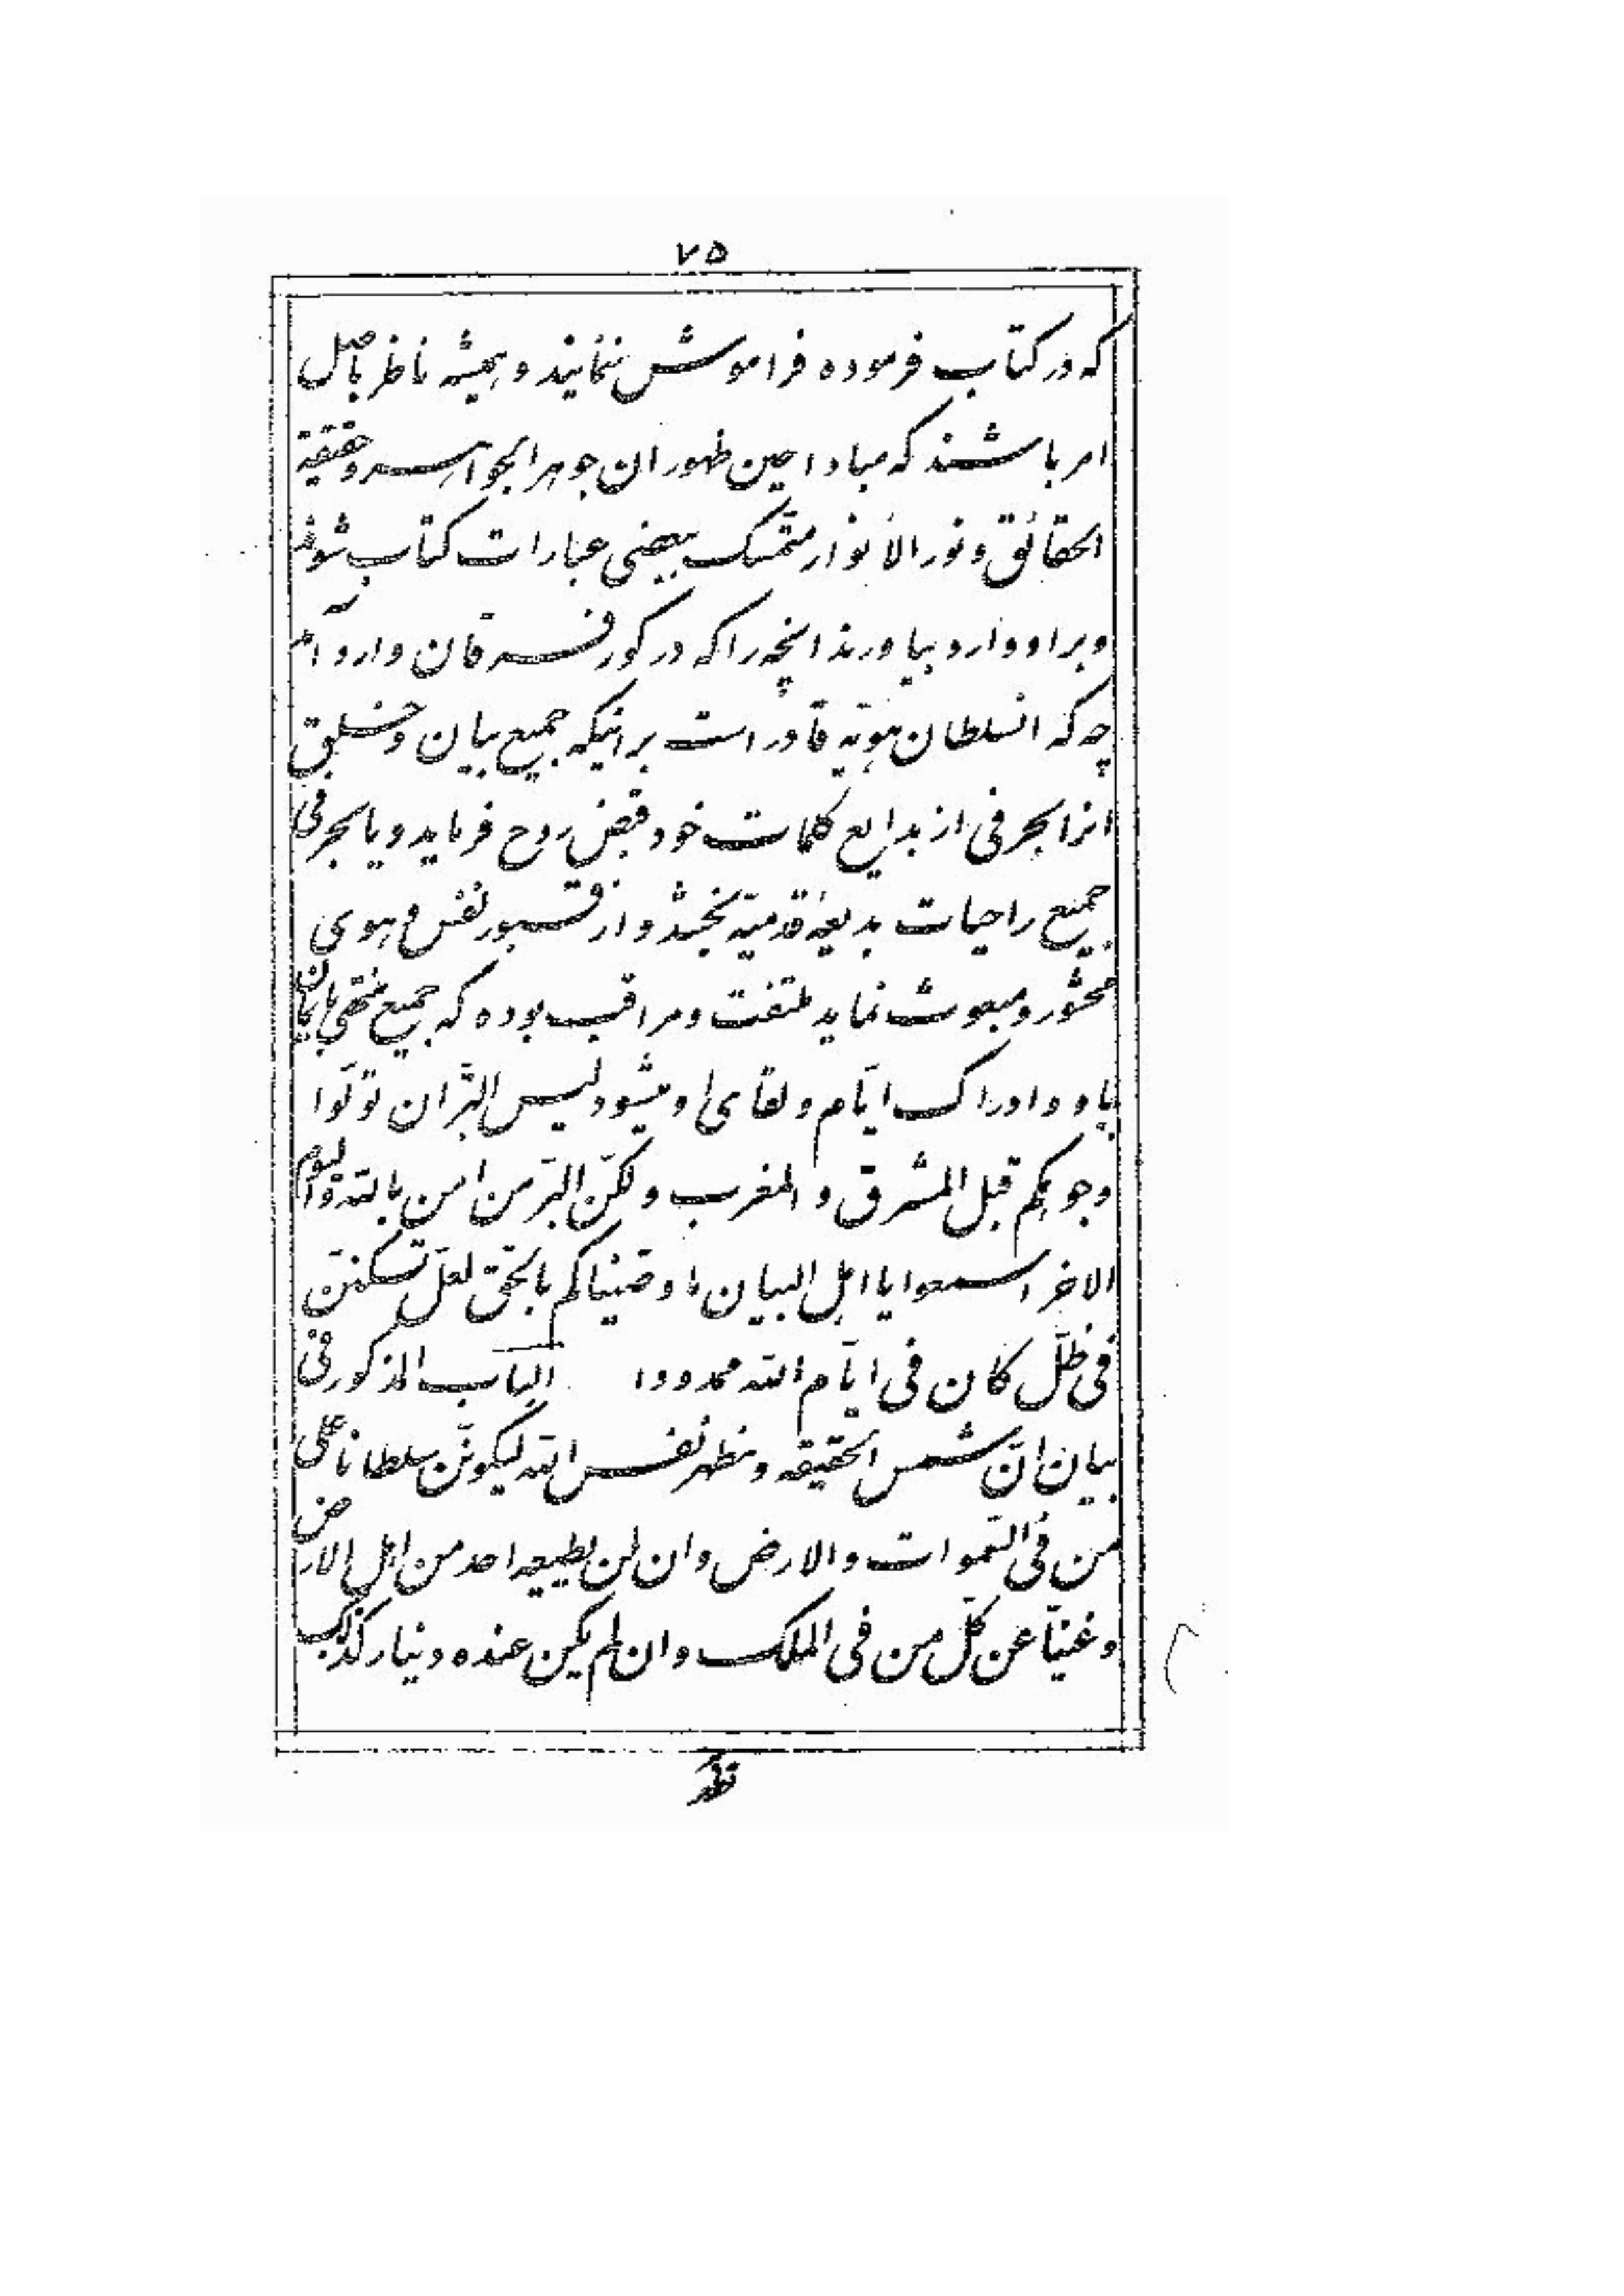 ۷۵
که در کتاب فرموده فراموش ننمایند و همیشه ناظر باصل
امر باشند که مبادا حین ظهور ان جوهر الجواهر و حقیقة
الحقائق و نور الانوار متمسّک ببعضی عبارات کتاب شوند
و بر او وارد بیاورند انچه را که در کور فرقان وارد آمد
چه که انسلطان هویّه قادر است بر اینکه جمیع بیان و خلق
انرا بحرفی از بدایع کلمات خود قبض روح فرماید و یا بحرفی
جمیع را حیات بدیعهٔ قدمیّه بخشد و از قبور نفس و هوی
محشور و مبعوث نماید ملتفت و مراقب بوده که جمیع منتهی بایمان
باو و ادراک ایّام و لقای او میشود لیس البرّ ان تولّوا
وجوهکم قبل المشرق و المغرب و لکنّ البرّ من امن بالله و الیوم
الاخر اسمعوا یا اهل البیان ما وصّیناکم بالحقّ لعلّ تسکننّ
فی ظلّ کان فی ایّام الله ممدودا الباب المذکور فی
بیان انّ شمس الحقیقه و مظهر نفس الله لیکوننّ سلطانا علی
من فی السّموات و الارض و ان لن یطیعه احد من اهل الارض
و غنیّا عن کلّ من فی الملک و ان لم یکن عنده دینار کذلک